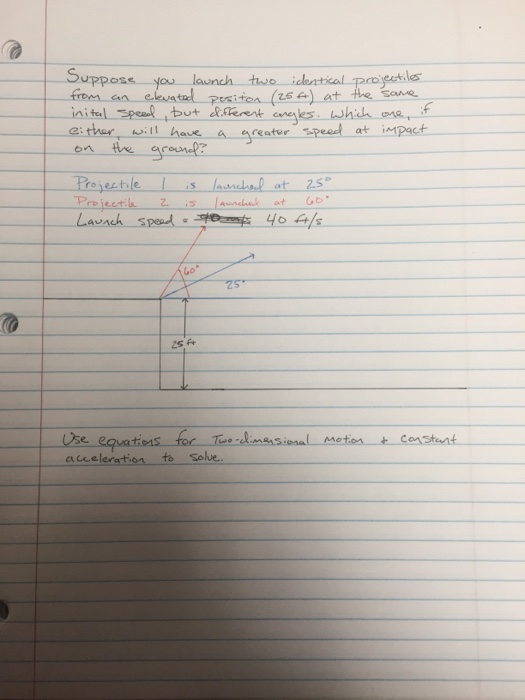 Suppose you launch two identical projectiles
from an elevated positon (25 ft) at the same
inital speed, but different angles. Which one, if
either, will have a greater speed at impact
on the ground?
Projectile 1 is launched at 25°
Projectile 2 is launched at 60°
Launch speed = 40 ft/s
60°
25°
25 ft
Use equations for Two-dimensional Motion + Constant
acceleration to solve.